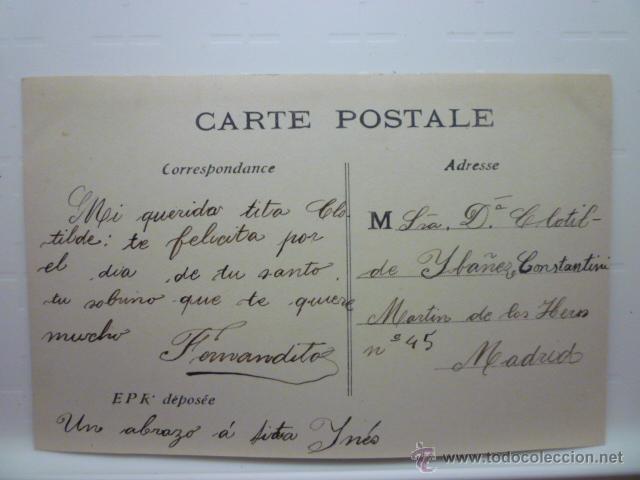 CARTE POSTALE
Correspondance
Mi querida tita Clo-
tilde: te felicita por
el dia de tu santo
tu sobrino que te quiere
mucho
Fernandito
EPK déposée
Un abrazo á tita Ynés
Adresse
M Sra. Dª Clotil-
de Ybañez Constantini
Martin de los Heros
nº 45
Madrid
www.todocoleccion.net